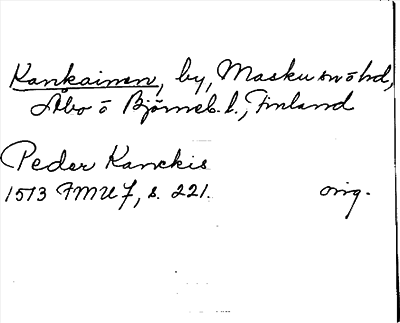 Kankainen, by, Masku sn o hd,
Åbo o Björneb. l., Finland
Peder Kanckis
1513 FMU 7, s. 221. orig.